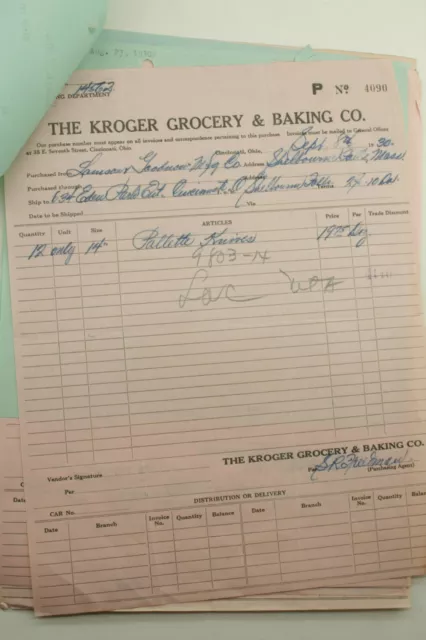 NG. DEPARTMENT
P No 4090
THE KROGER GROCERY & BAKING CO.
Our purchase number must appear on all invoices and correspondence pertaining to this purchase. Invoices must be mailed to General Offices
at 35 E. Seventh Street, Cincinnati, Ohio.
Cincinnati, Ohio, Sept. 8th 1930
Purchased from Lamson Goodnow Mfg Co. Address Shelbourn Falls, Mass.
Purchased through
Ship to Eden Park Ent. Cincinnati, O Shelbourne Falls 2% 10 Da
Date to be Shipped Via
Quantity Unit Size ARTICLES Price Per Trade Discount
12 only 14" Pallette Knives 19 75 Dz
9803-14
Loc
THE KROGER GROCERY & BAKING CO.
Vendor's Signature
Per
Per
(Purchasing Agent)
DISTRIBUTION OR DELIVERY
CAR No.
Date Branch Invoice No. Quantity Balance Date Branch Invoice No. Quantity Balance